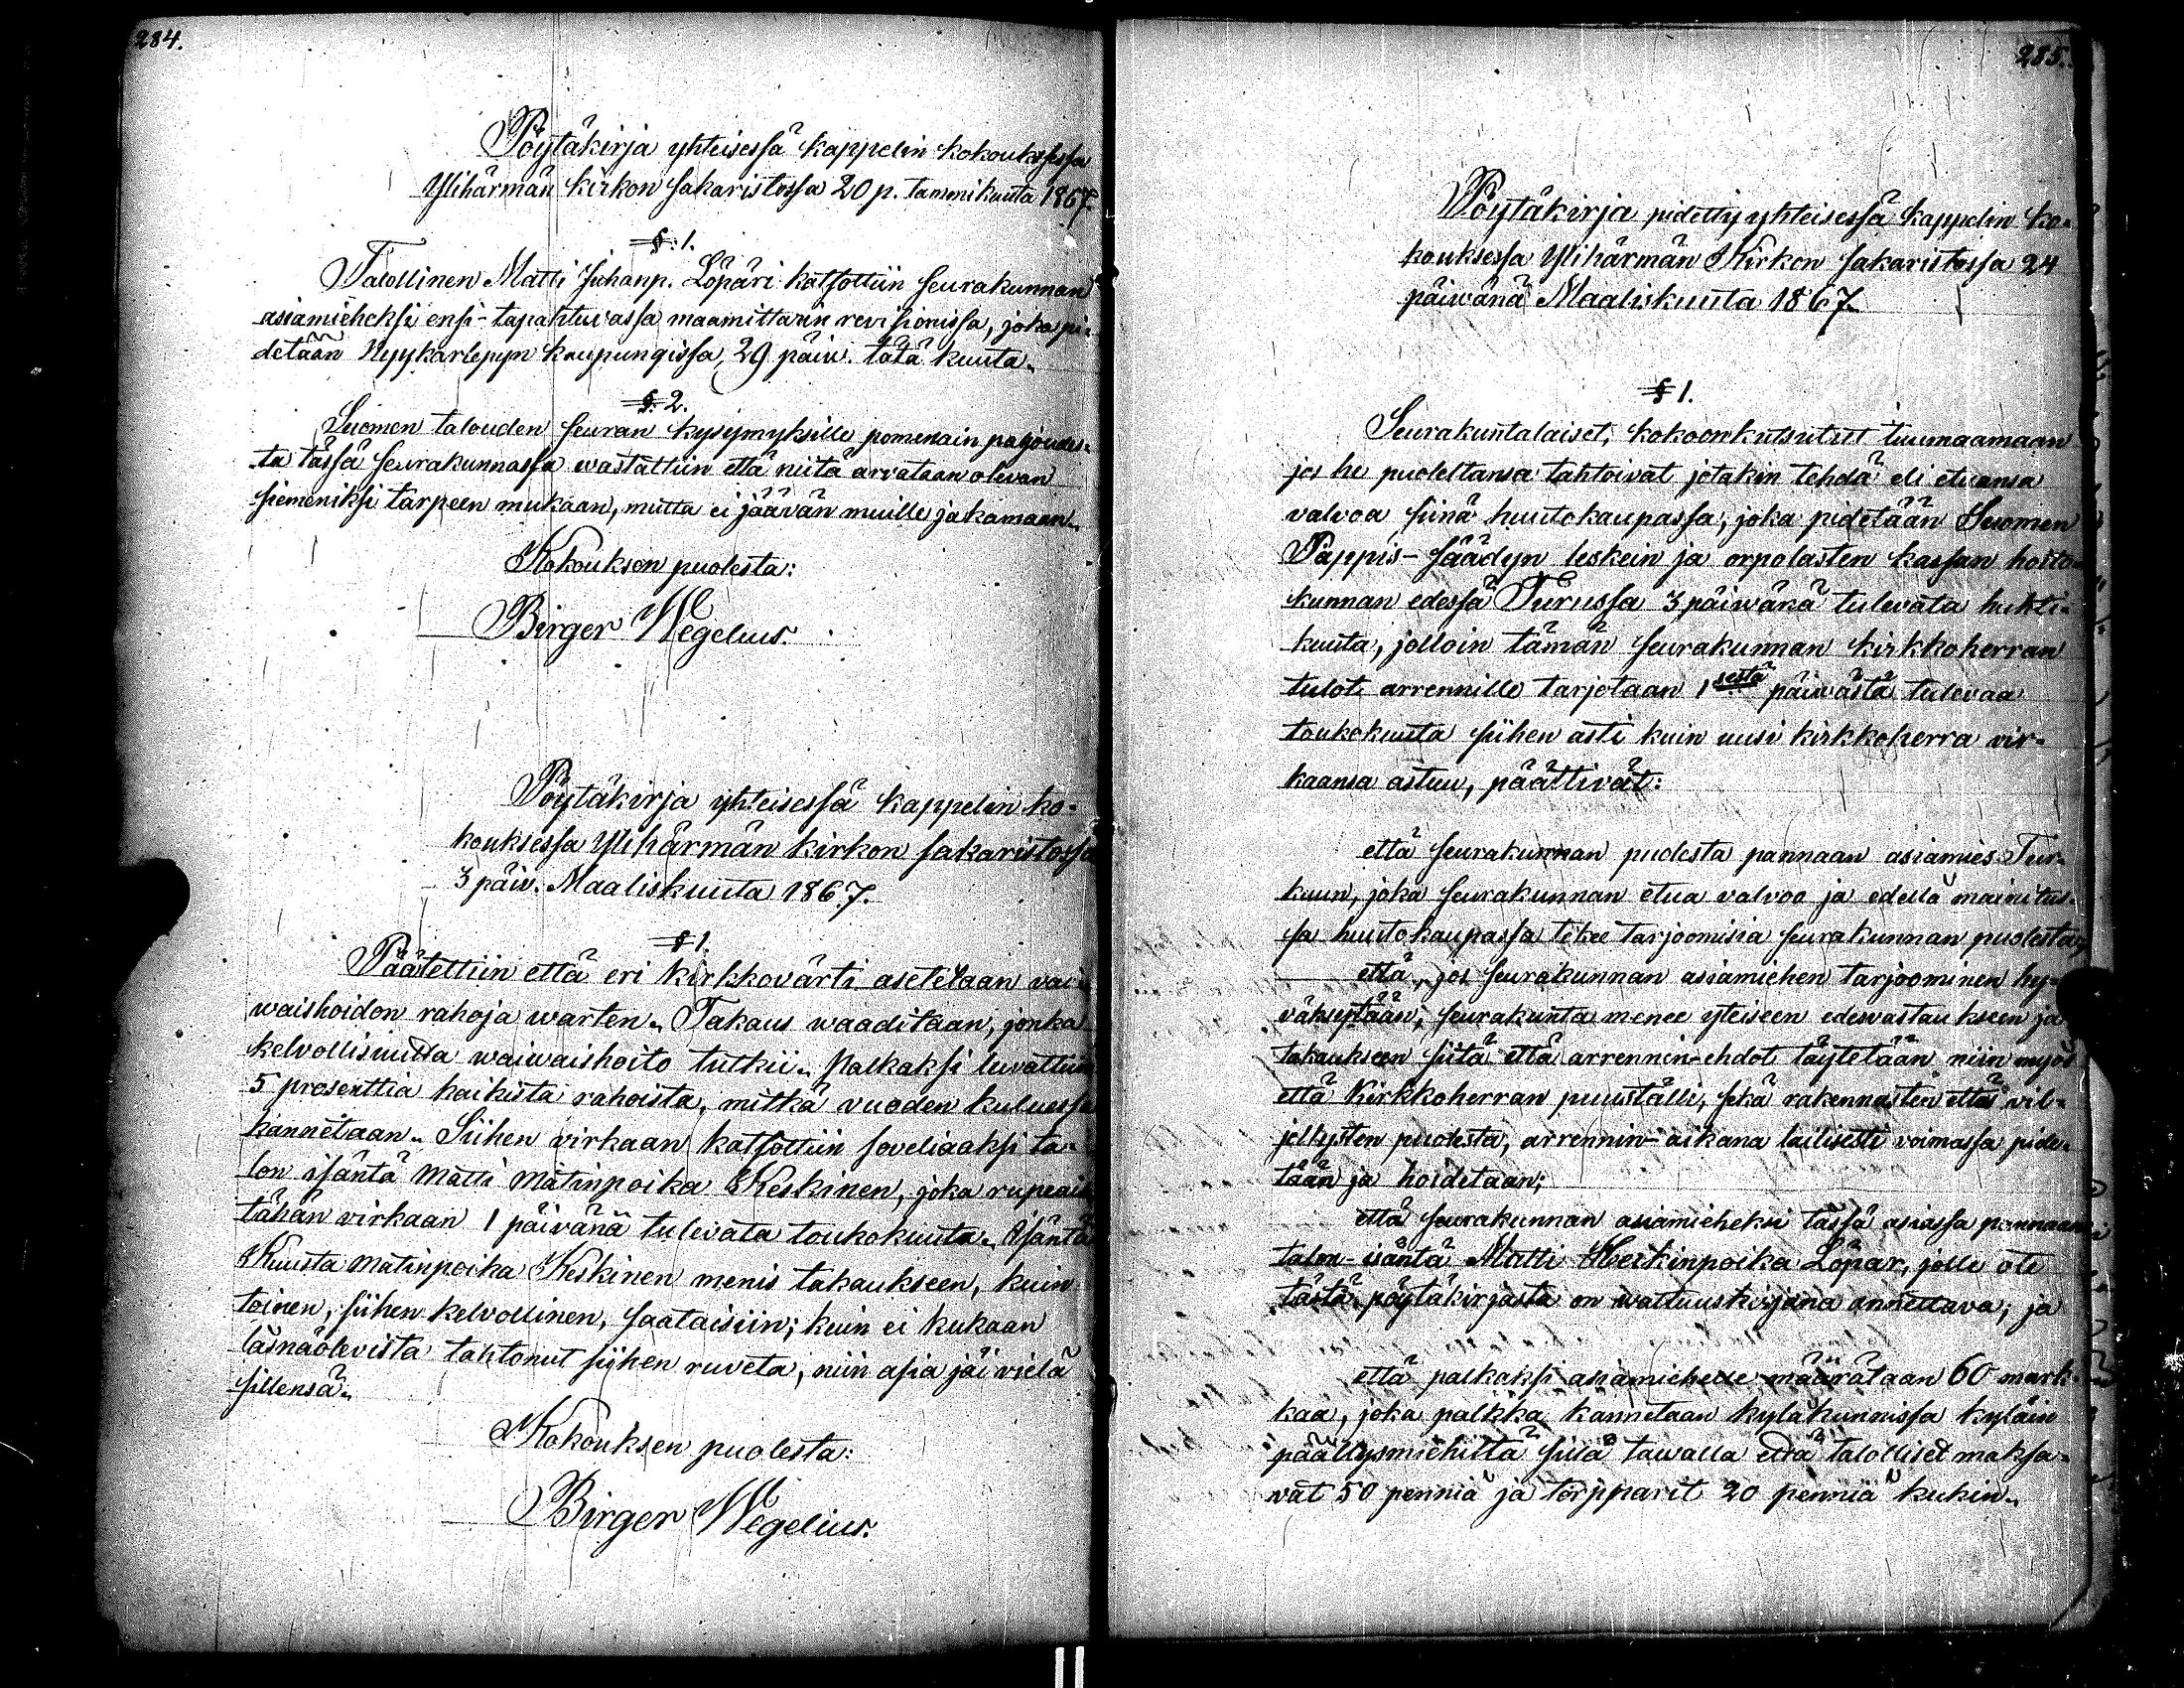 284.
Pöytäkirja yhteisessä kappelin kokouksessa
Ylihärmän kirkon sakaristossa 20 p. tammikuuta 1867.
§. 1.
Talollinen Matti Juhanp. Löpäri katsottiin seurakunnan
asiamieheksi ensi-tapahtuvassa maamittarin revisionissa, joka pi-
detään Nyykarlepyyn kaupungissa, 29 päiv. tätä kuuta.
§. 2.
Suomen talouden seuran kysymyksille pomenain paljoudes-
ta tässä seurakunnassa wastattiin että niitä arvataan olevan
siemeniksi tarpeen mukaan, mutta ei jäävän muille jakamaan.
Kokouksen puolesta:
Birger Wegelius.
Pöytäkirja yhteisessä kappelin ko-
kouksessa Ylihärmän kirkon sakaristossa
3 päiv. Maaliskuuta 1867.
§ 1.
Päätettiin että eri kirkkovärti asetetaan vai-
waishoidon rahoja warten. Takaus waaditaan, jonka
kelvollisuutta waiwaishoito tutkii. Palkaksi luvattiin
5 prosenttia kaikista rahoista, mitkä vuoden kuluessa
kannetaan. Siihen virkaan katsottiin soveliaaksi ta-
lon isäntä Matti Matinpoika Keskinen, joka rupeaisi
tähän virkaan 1 päivänä tulevata toukokuuta. Isäntä
Kuusta Matinpoika Keskinen menis takaukseen, kuin
toinen, siihen kelvollinen, saataisiin; kuin ei kukaan
läsnäolevista tahtonut siihen ruveta, niin asia jäi vielä
sillensä.
Kokouksen puolesta:
Birger Wegelius.
285.
Pöytäkirja pidetty yhteisessä kappelin ko-
kouksessa Ylihärmän Kirkon sakaristossa 24
päiwänä Maaliskuuta 1867.
§ 1.
Seurakuntalaiset, kokoonkutsutut tuumaamaan
jos he puoleltansa tahtoivat jotakin tehdä eli etuansa
valvoa siinä huutokaupassa, joka pidetään Suomen
Pappis-säädyn leskein ja orpolasten kassan hoito-
kunnan edessä Turussa 3 päiwänä tulevata huhti-
kuuta, jolloin tämän seurakunnan kirkkoherran
tulot arrennille tarjotaan 1sestä päiwästä tulevaa
toukokuuta siihen asti kuin uusi kirkkoherra vir-
kaansa astuu, päättivät:
että seurakunnan puolesta pannaan asiamies Tur-
kuun, joka seurakunnan etua valvoo ja edellä mainitus-
sa huutokaupassa tekee tarjoomisia seurakunnan puolesta;
että, jos seurakunnan asiamiehen tarjoominen hy-
väksytään, seurakunta menee yteiseen edesvastaukseen ja
takaukseen siitä että arrennin-ehdot täytetään niin myös
että Kirkkoherran puuställi, sekä rakennusten että vil-
jellysten puolesta, arrennin-aikana laillisesti voimassa pide-
tään ja hoidetaan;
että seurakunnan asiamieheksi tässä asiassa pannaan
talon-isäntä Matti Heikinpoika Löpar, jolle ote
tästä pöytäkirjasta on waltuuskirjana annettava; ja
että palkaksi asiamiehelle määrätaan 60 mark-
kaa, joka palkka kannetaan kyläkunnissa kyläin
päällysmiehiltä sillä tawalla että talolliset maksa-
wat 50 penniä ja torpparit 20 penniä kukin.